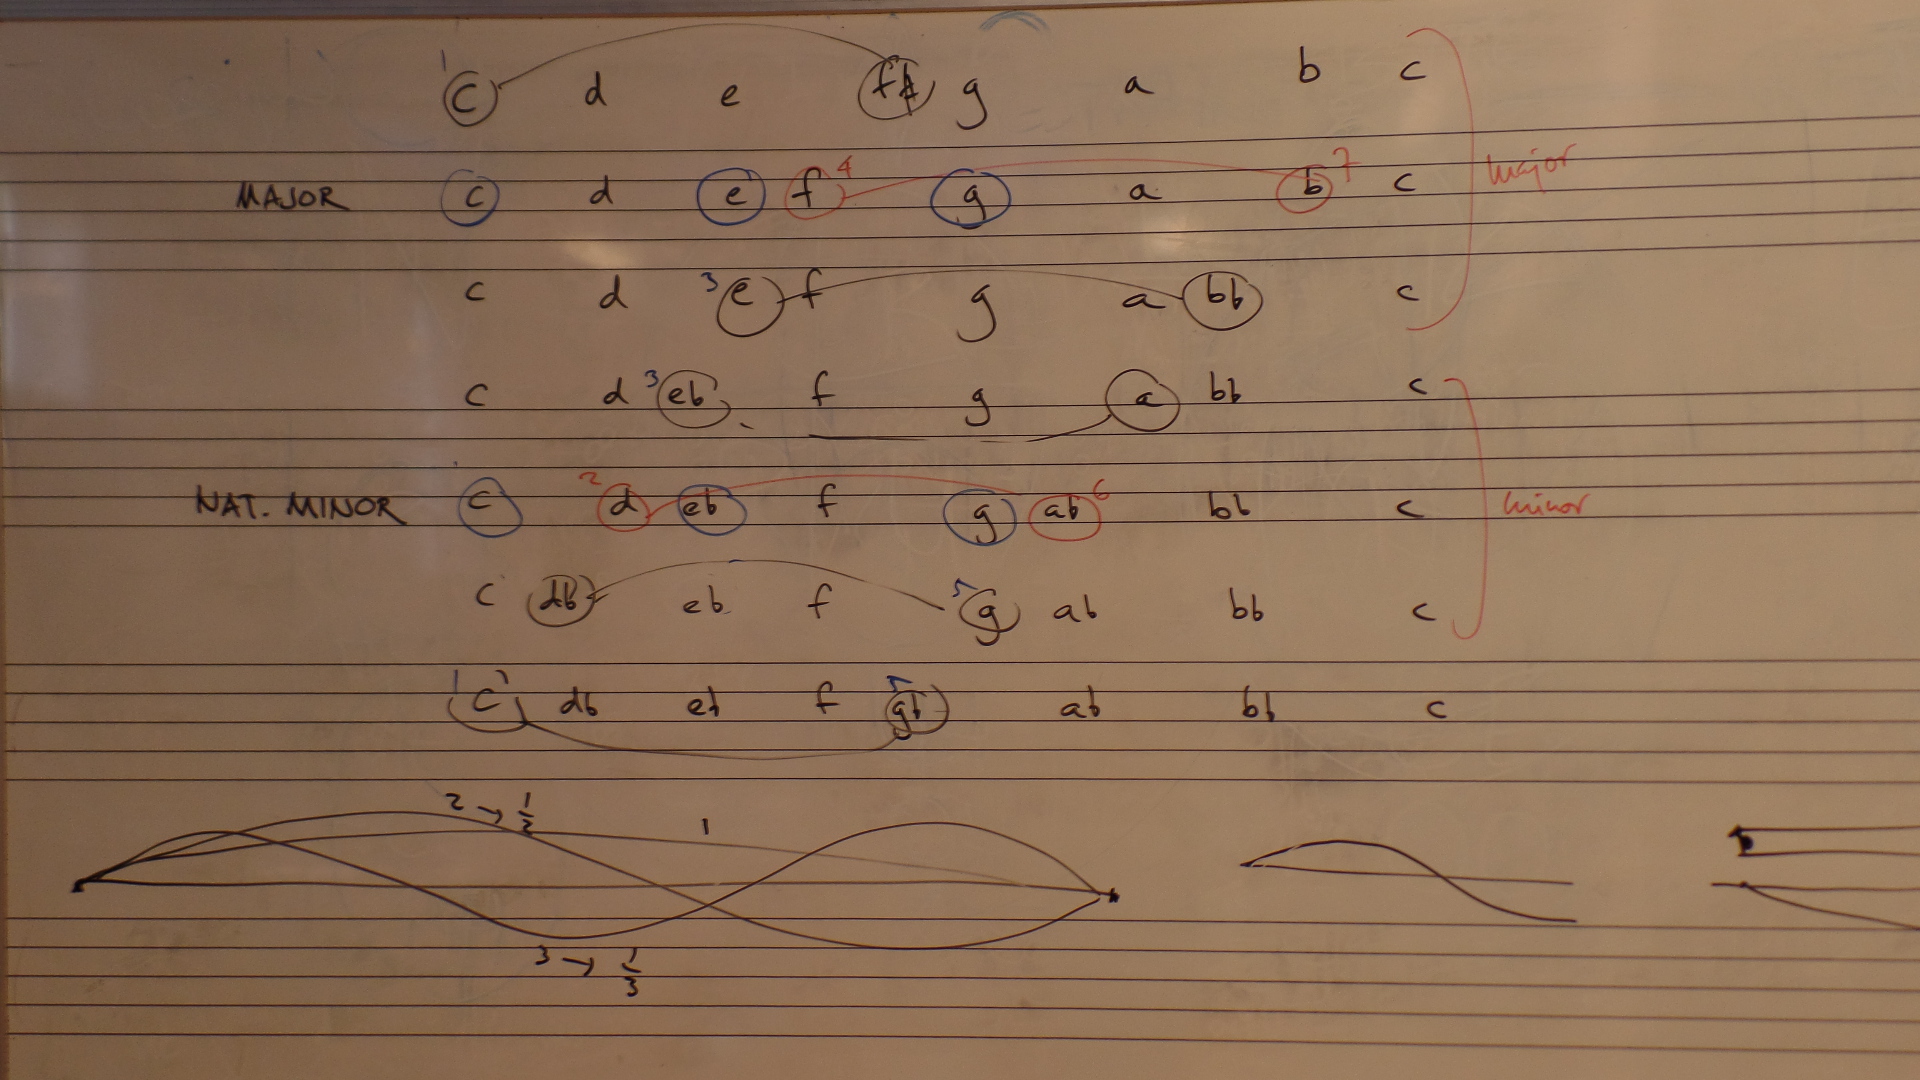 1 c d e f# g a b c
MAJOR c d e f 4 g a b 7 c major
c d 3 e f g a bb c
c d 3 eb f g a bb c
NAT. MINOR c 2 d eb f g ab 6 bb c minor
c db eb f 5 g ab bb c
1 c db eb f 5 gb ab bb c
2 → 1/2 1
3 → 1/3